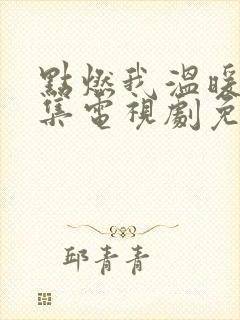 點燃我溫暖
集電視劇免
邱青青